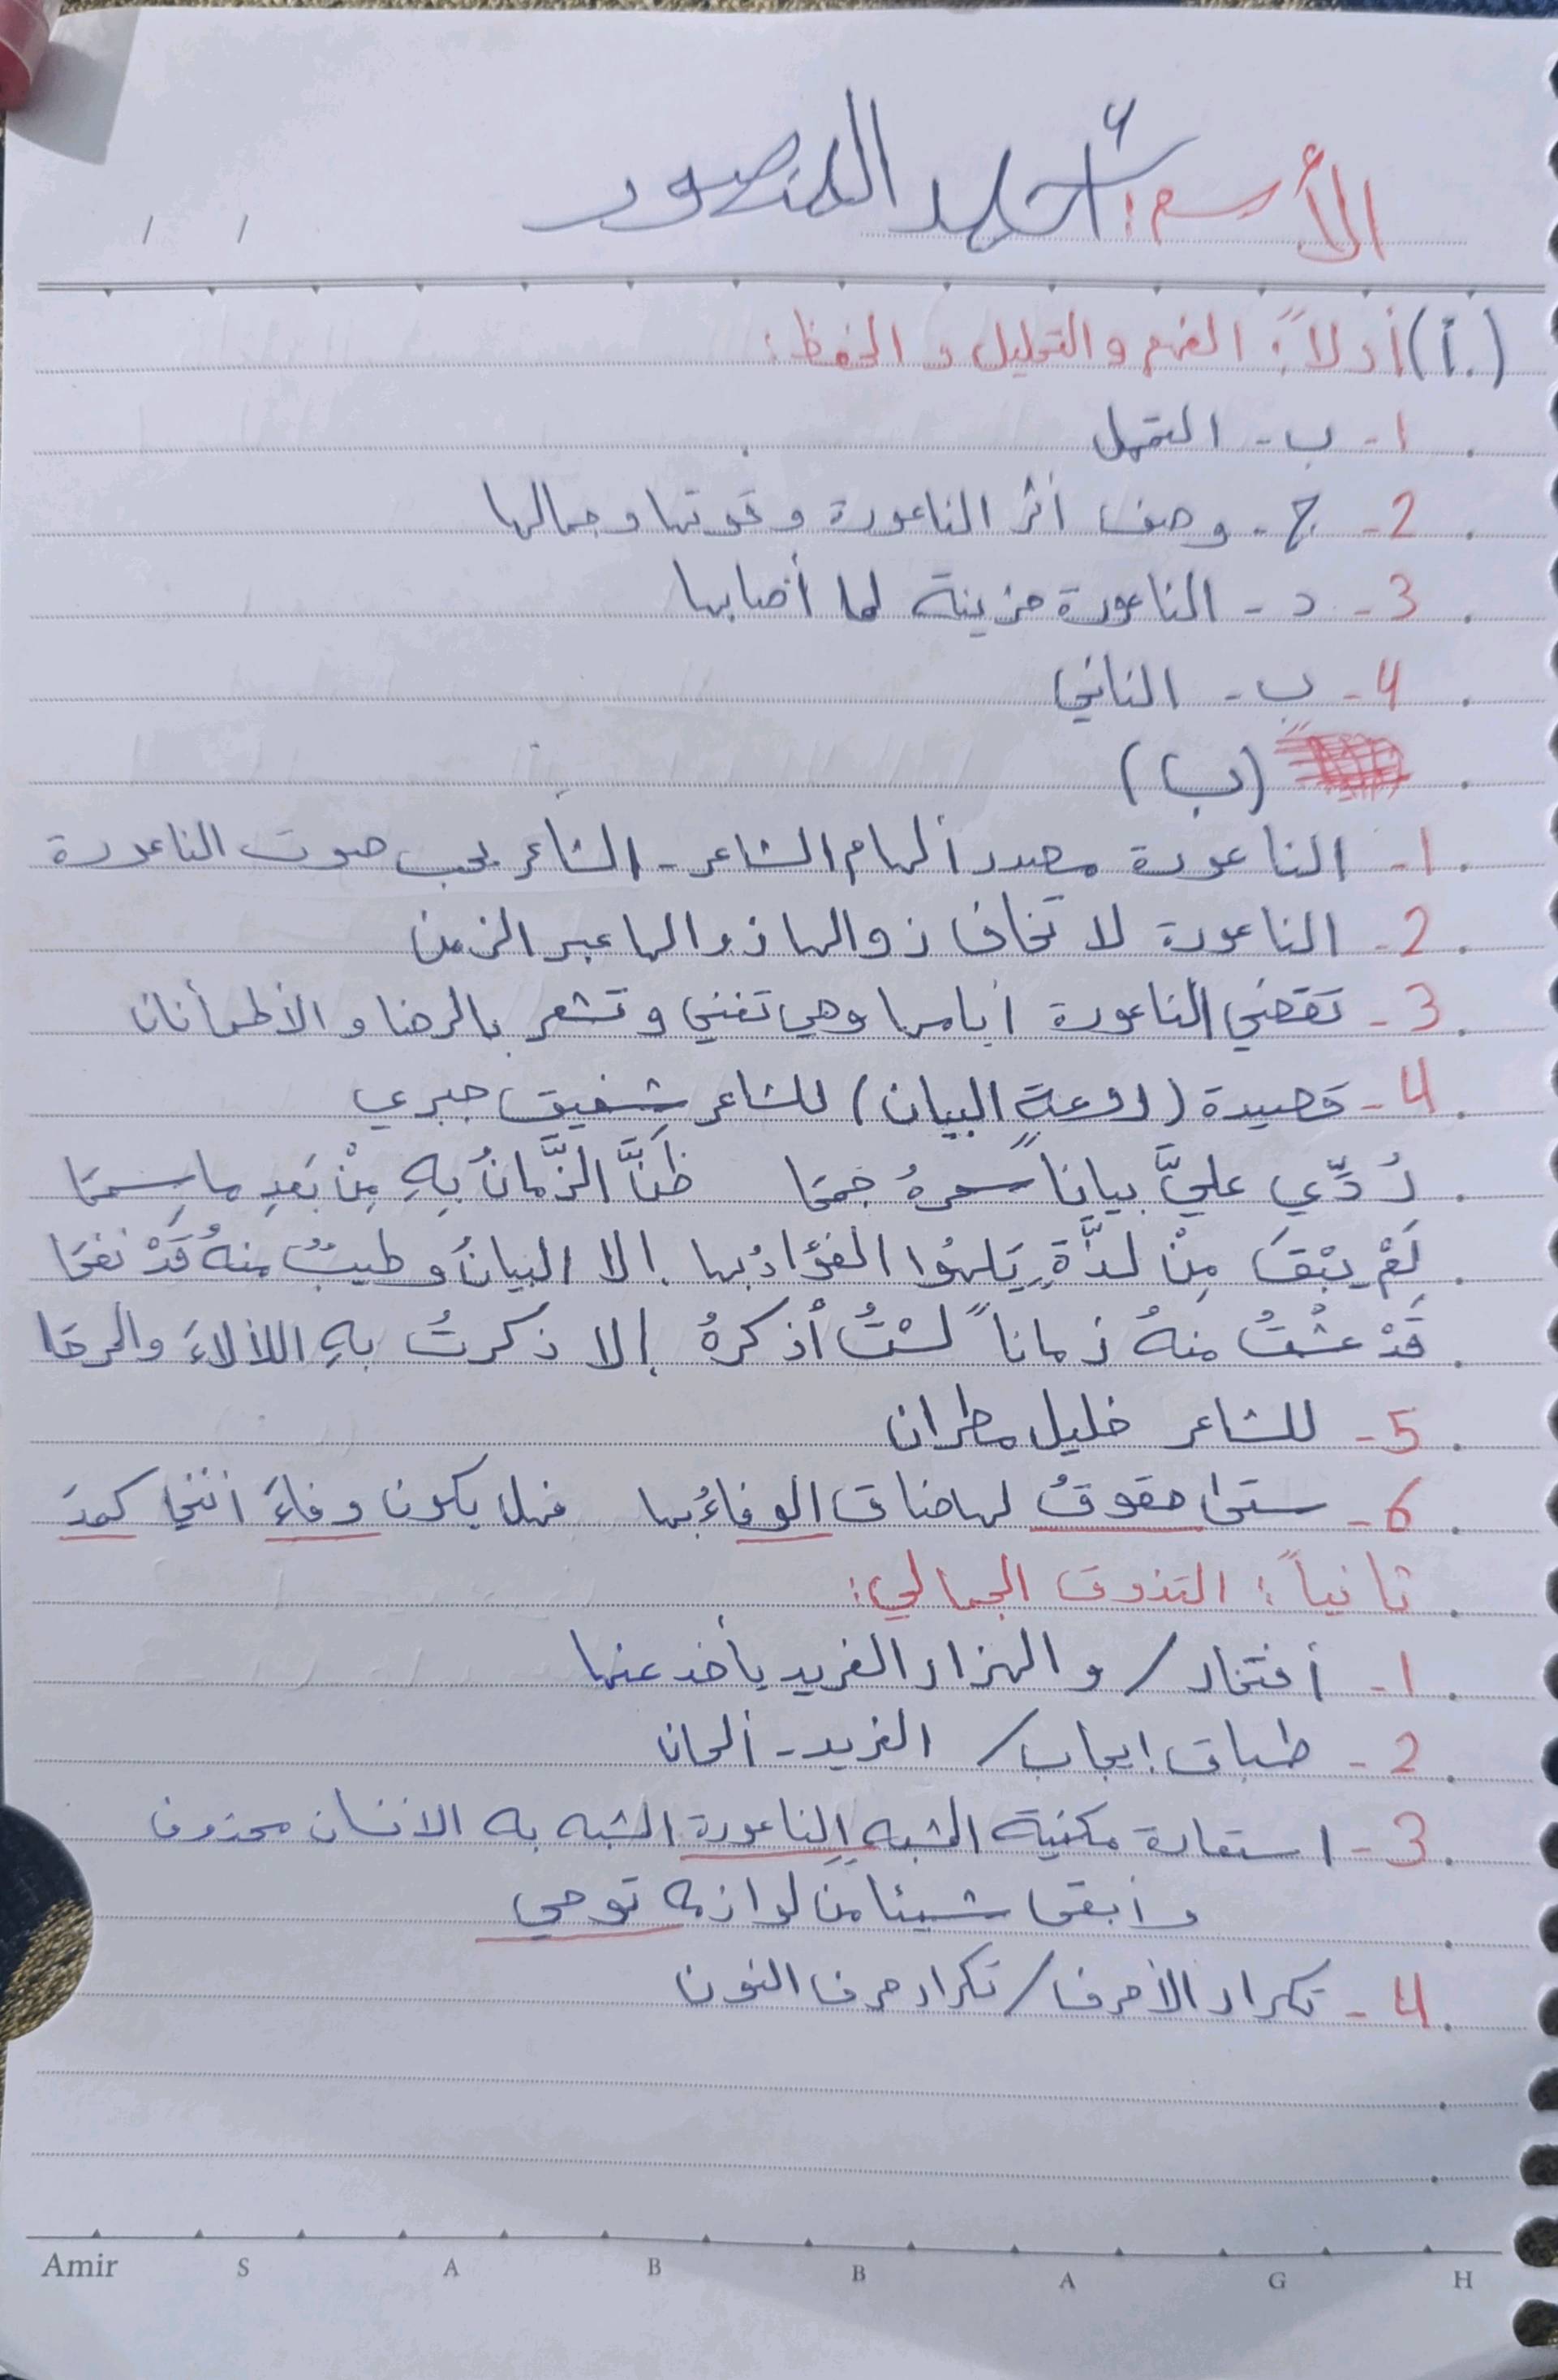 الأسم: أحمد المنصور
/ /
(أ) أولاً: الفهم والتحليل و الحفظ:
1- ب- التمهل
2- ج- وصف أثر الناعورة وقوتها وجمالها
3- د- الناعورة حزينة لما أصابها
4- ب- الثاني
(ب)
1- الناعورة مصدر ألهام الشاعر - الشاعر يحب صوت الناعورة
2- الناعورة لا تخاف زوالها زوالها عبر الزمن
3- تقضي الناعورة أيامها وهي تغني وتشعر بالرضا و الأطمأنان
4- قصيدة (روعة البيان) للشاعر شفيق جبري
رُدِّي عليَّ بياناً سحرهُ جمحَا ظنَّ الزَّمانُ بهِ مِنْ بَعدِ ما سمحَا
لَمْ يبْقَ مِنْ لذَّةٍ يَلهُوا الفؤادُ بها إلا البيانُ وطيبٌ منهُ قَدْ نفحَا
قَدْ عشْتُ منهُ زماناً لسْتُ أذكرهُ إلا ذكرتُ بهِ اللألاءَ والمرحَا
5- للشاعر خليل مطران
6- ستى حقوقٌ لها ضاق الوفاءُ بها فهل يكون وفاءً كمدَ
ثانياً: التذوق الجمالي:
1- أفتخار / و الهزار الغريد يأخذ عنها
2- طباق إيجاب / الغريد - ألحان
3- استعارة مكنية المشبه الناعورة المشبه به الانسان محذوف
وأبقى شيئاً من لوازمه توحي
4- تكرار الأحرف / تكرار حرف النون
Amir S A B B A G H